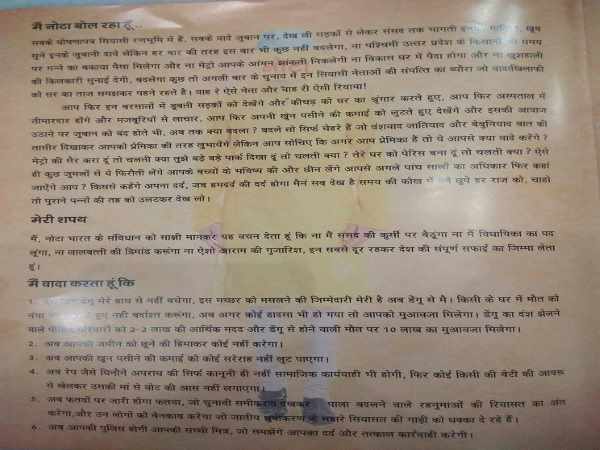 मैं नोटा बोल रहा हूं...
सबके घोषणापत्र सियासी रणभूमि में हैं, सबके वादे जुबान पर, देख ली सड़कों से लेकर संसद तक भागती इनकी खूब
सुने इनके जुबानी वादे लेकिन हर बार की तरह इस बार भी कुछ नहीं बदलेगा, ना पश्चिमी उत्तर प्रदेश के किसानों को समय
पर गन्ने का बकाया पैसा मिलेगा और ना मेट्रो आपके आंगन झांकती निकलेगी ना विकास घर में पैदा होगा और ना खुशहाली
की किलकारी सुनाई देगी, बदलेगा कुछ तो अगली बार के चुनाव में इन सियासी नेताओं की संपत्ति का ब्यौरा जो वादाखिलाफी
को सर का ताज समझकर पहने रहते है। वाह रे ऐसे नेता और वाह री ऐसी रियाया!
आप फिर इन बरसातों में डूबती सड़कों को देखेंगे और कीचड़ को घर का श्रृंगार करते हुए, आप फिर अस्पताल में
तीमारदार होंगे और मजबूरियों से लाचार, आप फिर अपनी खून पसीने की कमाई को लुटते हुए देखेंगे और इसकी आवाज
उठाने पर जुबान को बंद होते भी, अब तक क्या बदला? बदले सो सिर्फ चेहरे हैं जो वंशवाद जातिवाद और बेबुनियाद बात की
तासीर दिखाकर आपको प्रेमिका की तरह लुभायेंगे लेकिन आप सोचिए कि अगर आप प्रेमिका हैं तो ये आपसे क्या वादे करेंगे?
मेट्रो की सैर करा दूं तो चलती क्या तुझे बड़े बड़े पार्क दिखा दूं तो चलती क्या? तेरे घर को पेरिस बना दूं तो चलती क्या? ऐसे
ही कुछ जुमलों से ये फिरौती लेंगे आपके बच्चों के भविष्य की और छीन लेंगे आपसे अगले पांच सालों का अधिकार फिर कहां
जाएंगे आप? किससे कहेंगे अपना दर्द, जब हमदर्द की दर्द होगा मैंने सब देख है समय की कोख में छुपे हर राज को, चाहो
तो पुराने पन्नों की तह को उलटकर देख लो।
मेरी शपथ
मैं, नोटा भारत के संविधान को साक्षी मानकर यह वचन देता हूं कि ना मैं संसद की कुर्सी पर बैठूंगा ना मैं विधायिका का पद
लूंगा, ना लालबत्ती की डिमांड करूंगा ना ऐशो आराम की गुजारिश, इन सबसे दूर रहकर देश की संपूर्ण सफाई का जिम्मा लेता
हूं।
मैं वादा करता हूं कि
1. डेंगू मेरे हाथ से नहीं बचेगा, इस मच्छर को मसलने की जिम्मेदारी मेरी है अब डेंगू से मै। किसी के घर में मौत को
हुए नहीं बर्दाश्त करूंगा, अब अगर कोई हादसा भी हो गया तो आपको मुआवजा मिलेगा। डेंगू का दंश झेलने
वाले परिवारों को 2-2 लाख की आर्थिक मदद और डेंगू से होने वाली मौत पर 10 लाख का मुआवजा मिलेगा।
2. अब आपकी जमीन को छूने की हिमाकत कोई नहीं करेगा।
3. अब आपकी खून पसीने की कमाई को कोई सरेराह नहीं लूट पाएगा।
4. अब रेप जैसे घिनौने अपराध की सिर्फ कानूनी ही नहीं सामाजिक कार्यवाही भी होगी, फिर कोई किसी की बेटी की आबरू
से खेलकर उसकी मां से वोट की आस नहीं लगाएगा।
5. अब फतवों पर जारी होगा फतवा, जो चुनावी समीकरण देखकर पाला बदलने वाले रहनुमाओं की रियासत का अंत
करेगा,और उन लोगों को बेनकाब करेगा जो जातीय ध्रुवीकरण के सहारे सियासत की गाड़ी को धक्का दे रहे हैं।
6. अब आपकी पुलिस होगी आपकी सच्ची मित्र, जो समझेंगे आपका दर्द और तत्काल कार्रवाही करेगी।